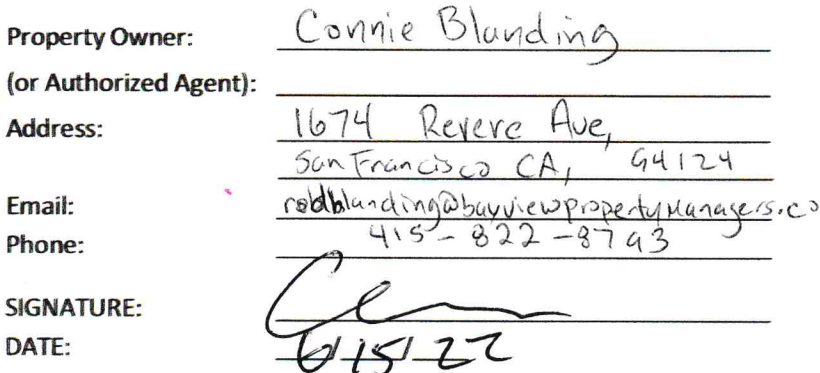 Property Owner: Connie Blanding
(or Authorized Agent):
Address: 1674 Revere Ave,
San Francisco CA, 94124
Email: robdblanding@bayviewpropertymanagers.co
Phone: 415-822-8793
SIGNATURE:
DATE: 6/15/22